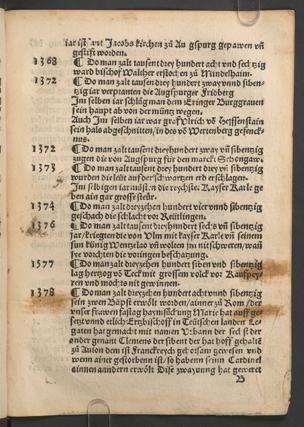 iar ist sant Jacobs kirchen zů Augspurg gepawen vñ
gestifft worden.
1368 ¶ Do man zalt tausent drey hundert acht vnd sechtzig
ward bischof Walther erstochen zů Mindelhaim.
1372 ¶ Do man zalt tausent dreyhundert zway vnd siben-
tzig iar verpranten die Augspurger Fridberg
Im selben iar schlůg man dem Eringer Burggrauen
sein haupt ab von der müntz wegen.
Auch Im selben iar war graf Vlrich võ Helffenstain
sein hals abgeschnitten/in des võ Wertenberg gefenck-
nus.
1372 ¶ Do man zalt tausent dreyhundert zway vñ sibentzig
zugen die von Augspurg für den marckt Schongaw.
1373 ¶ Do man zalt tausent dreyhundert drey vñ sibentzig
wurden die leüt auf der schwartzen erd erschlagen.
Im selbigen iar můsten die reychstet Kayser Karle ge
ben ain gar grosse steür.
1374 ¶ Do man zalt dreyzehen hundert vier vnnd sibentzig
geschach die schlacht vor Reütlingen.
1376 ¶ Do man zalt tausent dreyhundert sechs vñ sibentzig
iar/kriegten die von Vlm mit kayser Karle vnd seinem
sun künig Wentzlao vñ wolten im nit schweren/wañ
sye vorchten die vninigen beschatzung.
1377 ¶ Do man zalt dreyzehen hundert siben vnd sibentzig
lag hertzog võ Teck mit grossem volck vor Kauffpey
ren vnd mocht es nit gewinnen.
1378 ¶ Do man zalt dreyzehen hundert acht vnnd sibentzig
sein zwen Bäpst erwölt worden/ainer zů Rom/der
vnser frawen fasttag haymsůchung Marie hat auff ge-
setzt vnnd etlich Ertzbischoff in Teütschen landen Le-
gaten hat gemacht mit namen Vrbann der sechst der
ander genant Clemens der sibent der hat hoff gehalte
zů Auion dem ist Franckreych gehorsam gewesen vnd
wenn ainer gestorben ist/so habenn seinn Cardinel
ainnen anndern erwölt Dise zwayung hat geweret
B